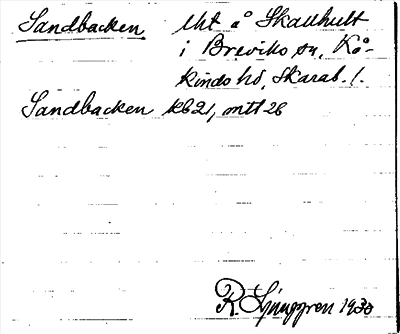 Sandbacken lht å Skallhult
i Breviks sn, Kå-
kinds hd, Skarab. l.
Sandbacken kb21, mtl 26
R. Ljunggren 1930